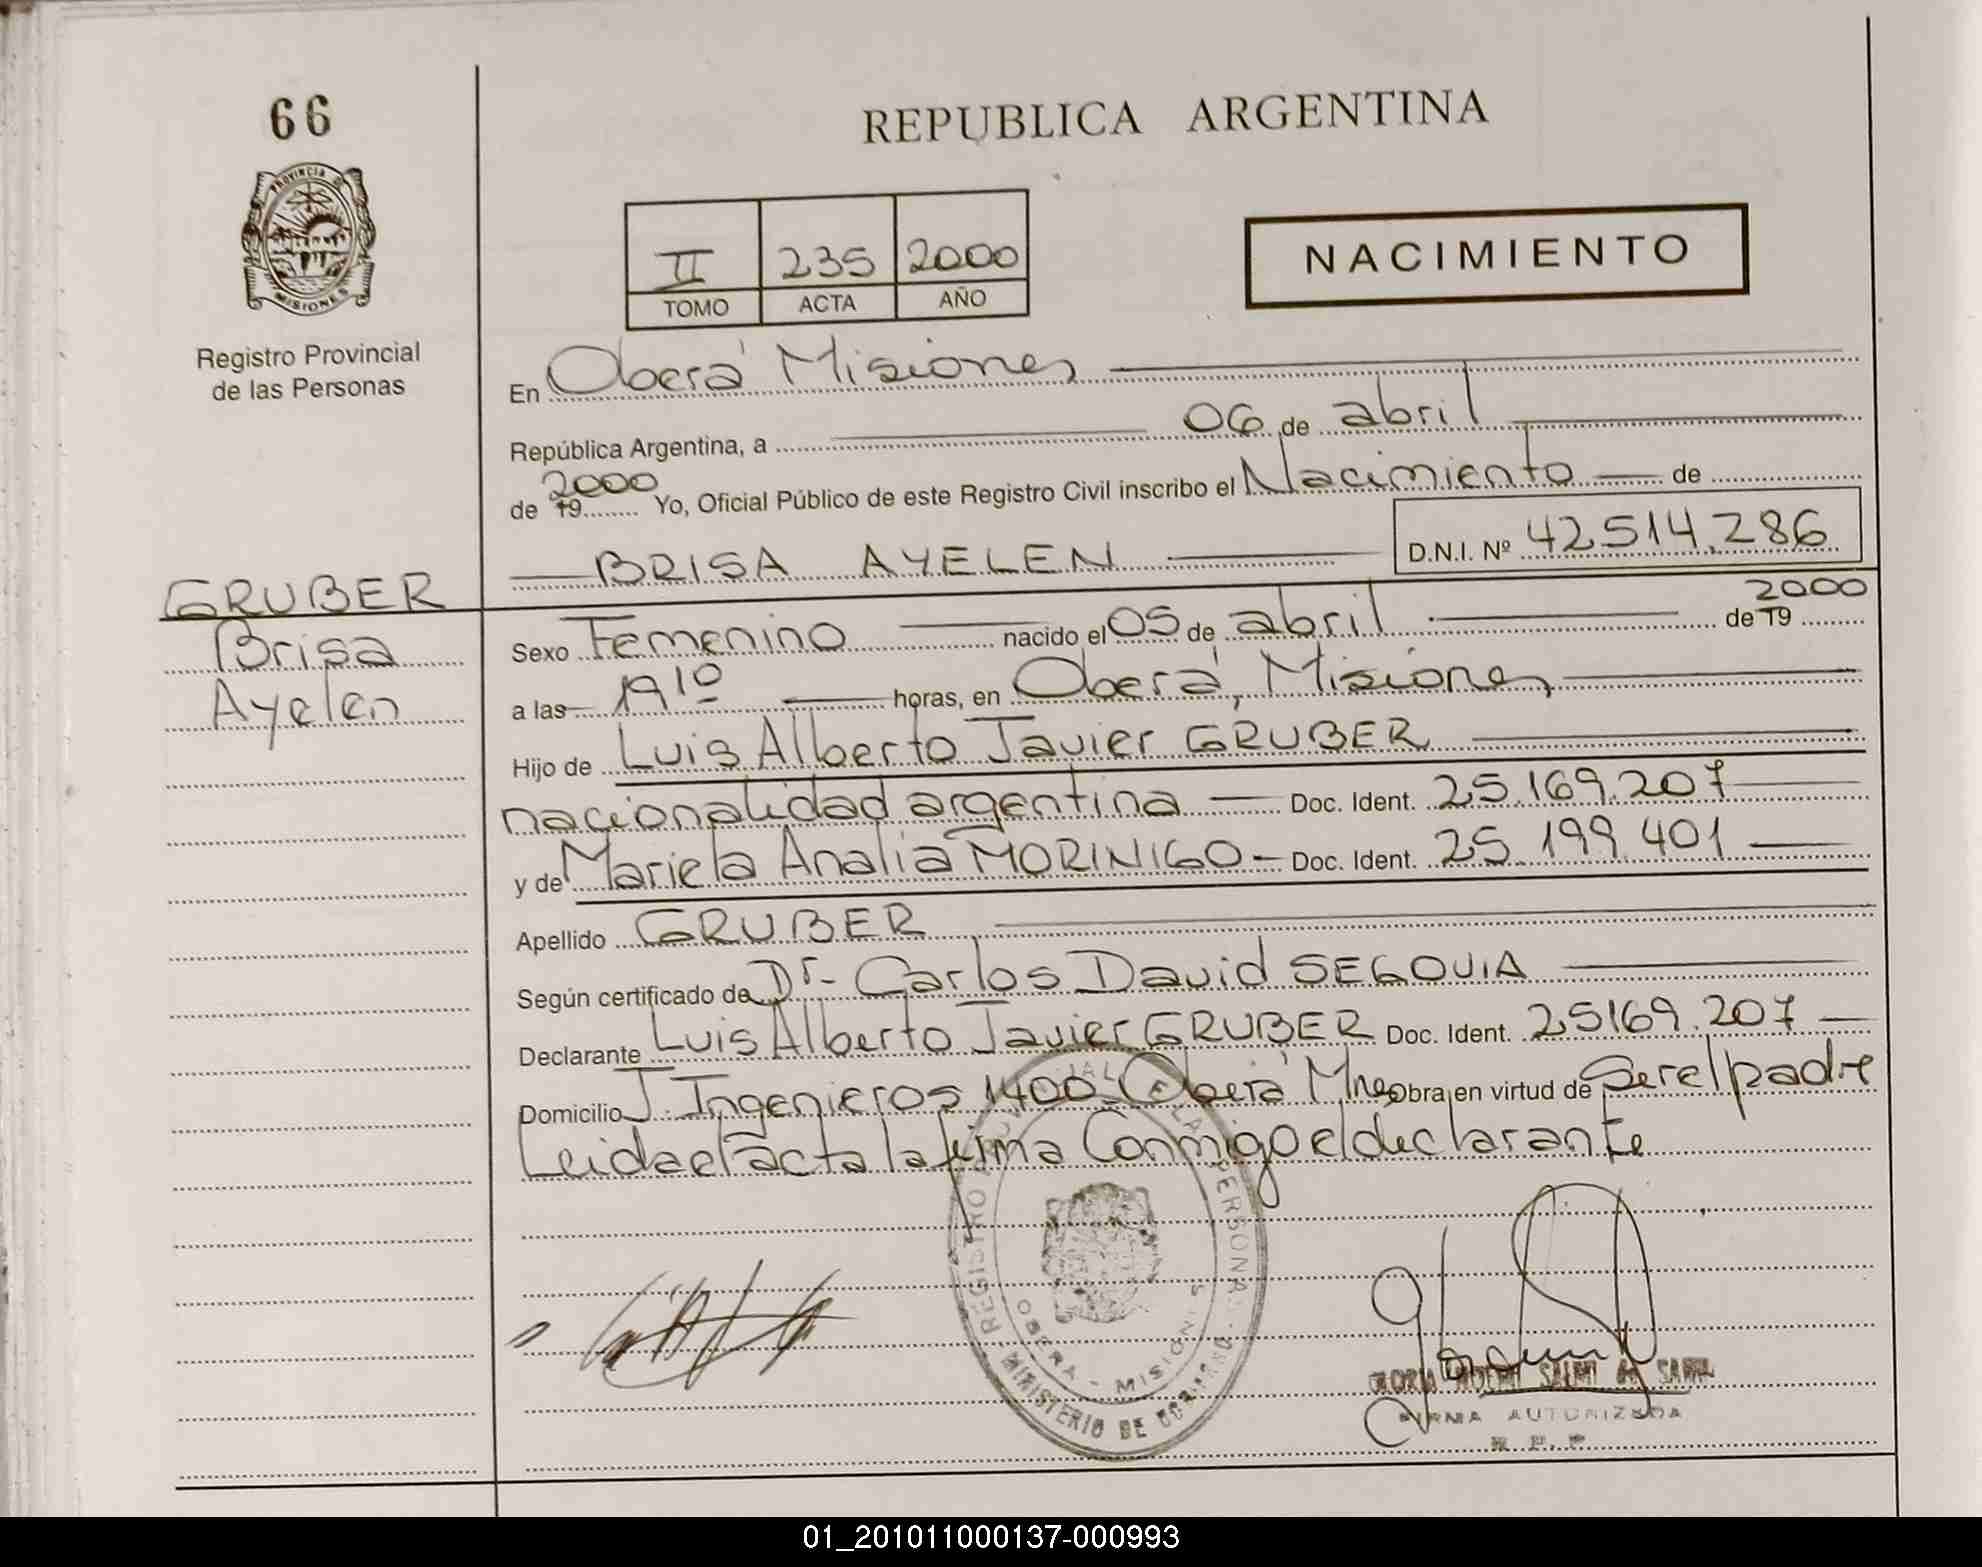 66
PROVINCIA DE
MISIONES
Registro Provincial
de las Personas
REPUBLICA ARGENTINA
II 235 2000
TOMO ACTA AÑO
NACIMIENTO
En Oberá Misiones
República Argentina, a 06 de abril
de 19 2000 Yo, Oficial Público de este Registro Civil inscribo el Nacimiento de
BRISA AYELEN D.N.I. Nº 42514.286
GRUBER
Brisa
Ayelen
Sexo Femenino nacido el 05 de abril de 19 2000
a las 19 10 horas, en Oberá, Misiones
Hijo de Luis Alberto Javier GRUBER
nacionalidad argentina Doc. Ident. 25.169.207
y de Mariela Analia MORINIGO - Doc. Ident. 25.199.401
Apellido GRUBER
Según certificado de Dr. Carlos David SEGOVIA
Declarante Luis Alberto Javier GRUBER Doc. Ident. 25169.207
Domicilio J. Ingenieros 1400 - Oberá Mnes Obra en virtud de Ser el padre
Leida el acta la firma Conmigo el declarante
REGISTRO LAS PERSONAS
OBERA - MISIONES
MINISTERIO DE GOBIERNO
GLORIA NOEMI
FIRMA AUTORIZADA
R. P. P.
01_201011000137-000993